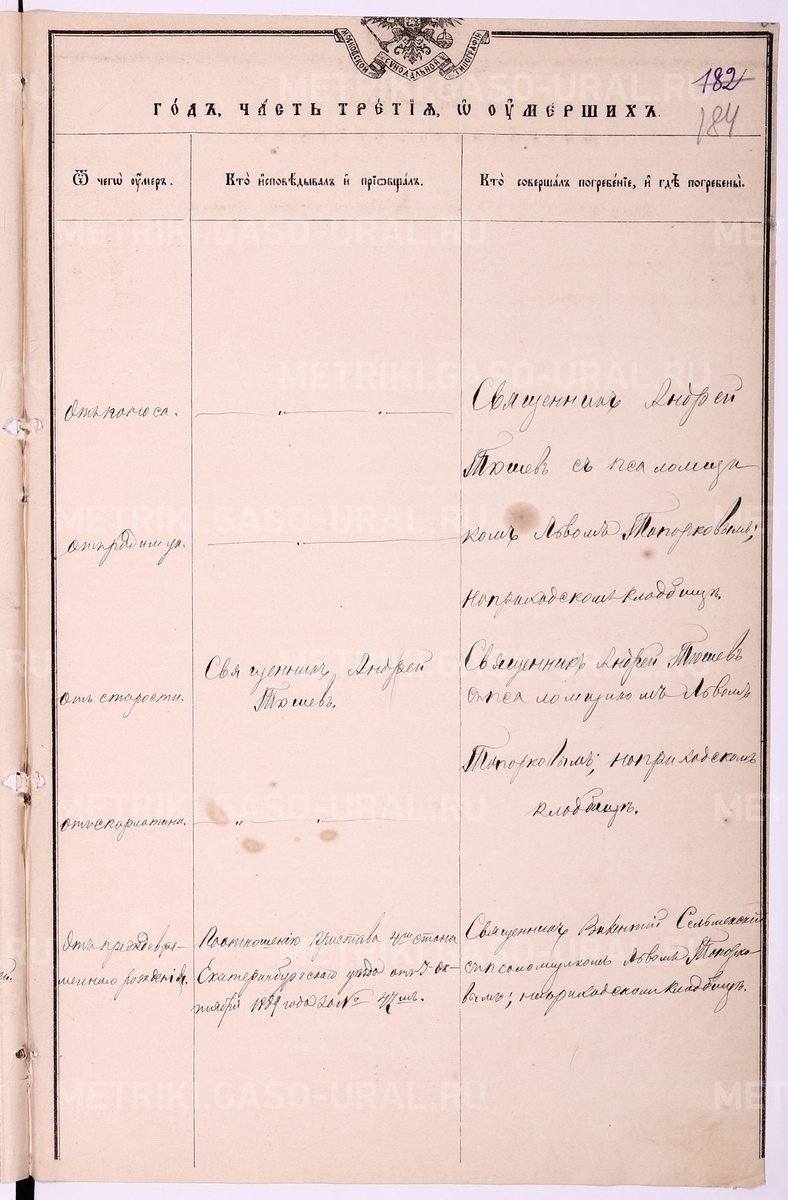 МОСКОВСКОЙ СѴНОДАЛЬНОЙ ТИПОГРАФІИ
182
184
ГО́ДЪ, ЧА́СТЬ ТРЕ́ТІѦ, Ѡ҆ ОУ҆МЕ́РШИХЪ.
Ѿ чегѡ̀ оу҆́меръ.
Кто̀ и҆сповѣ́дывалъ и҆ прїѡбща́лъ.
Кто̀ соверша́лъ погребе́нїе, и҆ гдѣ̀ погребены̀.
Отъ поноса.
Священникъ Андрей
Тюшевъ съ псаломщи
комъ Львомъ Топорковымъ;
на приходскомъ кладбищѣ.
отъ родимца.
отъ старости.
Священникъ Андрей
Тюшевъ.
Священникъ Андрей Тюшевъ
съ псаломщикомъ Львомъ
Топорковымъ; на приходскомъ
кладбищѣ.
отъ скарлатины.
Отъ преждевре-
меннаго рожденія.
По отношенію Пристава 4го стана
Екатеринбургскаго уѣзда отъ 7 ок-
тября 1889 года за №
Священникъ Викентій
съ псаломщикомъ Львомъ Топорко-
вымъ; на приходскомъ кладбищѣ.
METRIKI.GASO-URAL.RU